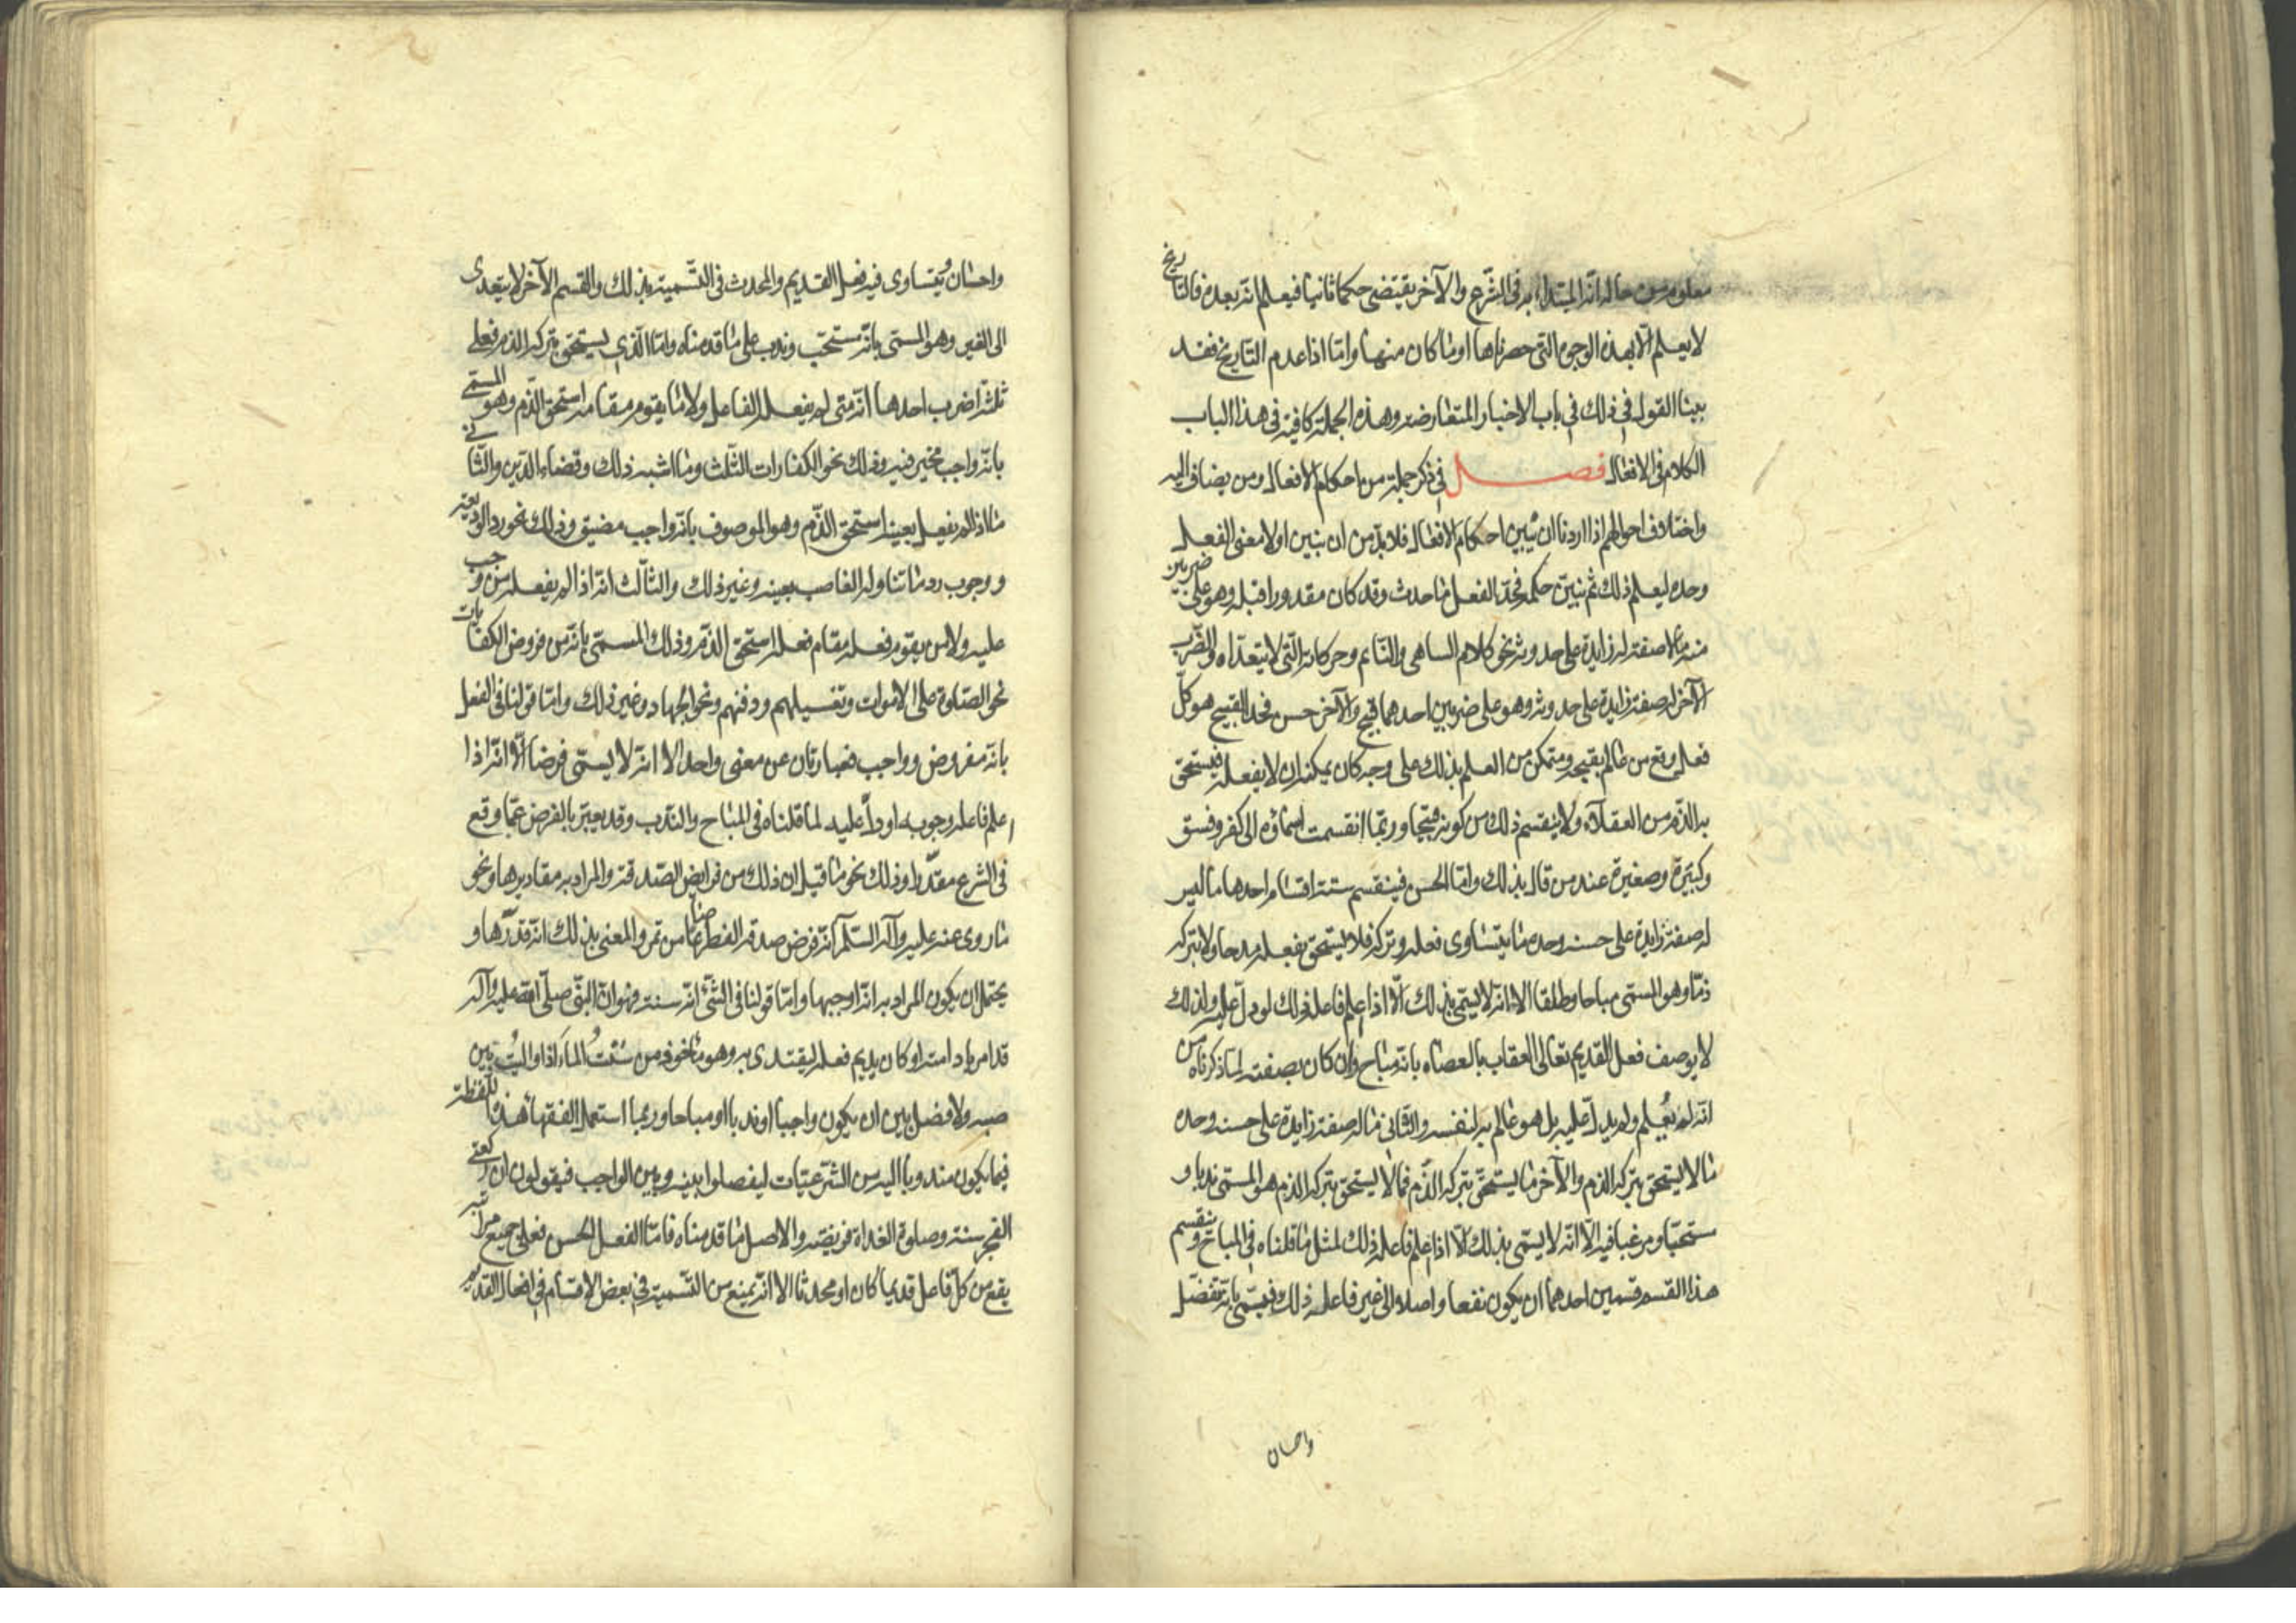 معلوم من حاله انه المبتداء به فى الشرع والآخر يقتضى حكما ثانيا فيعلم انه بعده فالتاريخ
لا يعلم الا بهذه الوجوه التى حصرناها او ما كان منها واما اذا عدم التاريخ فقد
بينا القول فى ذلك فى باب الاخبار المتعارضة وهذه الجملة كافية فى هذا الباب
الكلام فى الافعال فصل فى ذكر جملة من احكام الافعال ومن يضاف اليه
واختلاف احوالهم اذا اردنا ان نبين احكام الافعال فلا بد من ان نبين اولا معنى الفعل
وحده ليعلم ذلك ثم نبين حكمه فحد الفعل ما حدث وقد كان مقدورا قبله وهو على ضربين
منه ما لا صفة له زايدة على حدوثه نحو كلام الساهى والنائم وحركاته التى لا يتعداه والضرب
الآخر له صفة زايدة على حدوثه وهو على ضربين احدهما قبيح والآخر حسن فحد القبيح هو كل
فعل وقع من عالم بقبحه ومتمكن من العلم بذلك على وجه كان يمكنه ان لا يفعله فيستحق
به الذم من العقلاء ولا ينقسم ذلك من كونه قبيحا وربما انقسمت اسماؤه الى كفر وفسق
وكبيرة وصغيرة عند من قال بذلك واما الحسن فينقسم ستة اقسام احدها ما ليس
له صفة زايدة على حسنه وحده ما يتساوى فعله وتركه فلا يستحق بفعله مدحا ولا بتركه
ذما وهو المسمى مباحا وطلقا الا انه لا يسمى بذلك الا اذا اعلم فاعله ذلك او دل عليه ولذلك
لا يوصف فعل القديم تعالى العقاب بالعصاه بانه مباح وان كان بصفته لما ذكرناه من
انه لم يُعلم ولم يدل عليه بل هو عالم به لنفسه والثانى ما له صفة زايدة على حسنه وحده
ما لا يستحق بتركه الذم والآخر ما يستحق بتركه الذم فما لا يستحق بتركه الذم هو المسمى ندبا و
مستحبا ومرغبا فيه الا انه لا يسمى بذلك الا اذا اعلم فاعله ذلك لمثل ما قلناه فى المباح وينقسم
هذا القسم قسمين احدهما ان يكون نفعا واصلا الى غير فاعله ذلك فيسمى بانه تفضل
واحسان
واحسان ويتساوى فيه فعل القديم والمحدث فى التسمية بذلك والقسم الآخر لا يتعدى
الى الغير وهو المسمى بانه مستحب وندب على ما قدمناه واما الذى يستحق بتركه الذم فعلى
ثلثة اضرب احدها انه متى لم يفعله الفاعل ولا ما يقوم مقامه استحق الذم وهو المسمى
بانه واجب مخير فيه وذلك نحو الكفارات الثلث وما اشبه ذلك وقضاء الدين والثانى
ما اذا لم يفعل بعينه استحق الذم وهو الموصوف بانه واجب مضيق وذلك نحو رد الوديعة
ووجوب رد ما تناوله الغاصب بعينه وغير ذلك والثالث انه اذا لم يفعله من وجب
عليه ولا من يقوم فعله مقام فعله استحق الذم وذلك المسمى بانه من فروض الكفايات
نحو الصلوة على الاموات وتغسيلهم ودفنهم ونحو الجهاد وغير ذلك واما قولنا فى الفعل
بانه مفروض وواجب فعبارتان عن معنى واحد الا انه لا يسمى فرضا الا انه اذا
اعلم فاعله وجوبه او دل عليه لما قلناه فى المباح والندب وقد يعبر بالفرض عما وقع
فى الشرع مقدرا وذلك نحو ما قيل ان ذلك من فرايض الصدقة والمراد به مقاديرها ونحو
ما روى عنه عليه وآله السلم انه فرض صدقة الفطر صاعا من تمر والمعنى بذلك انه قدرها و
يحتمل ان يكون المراد به انه اوجبها واما قولنا فى الشئ انه سنة فهو ان النبى صلى الله عليه وآله
قد امر بادامته او كان يديم فعله ليقتدى به وهو مأخوذ من سننتُ الماء اذا واليتُ بين
صبه ولا فصل بين ان يكون واجبا او ندبا او مباحا وربما استعمل الفقهاء هذه اللفظة
فيما يكون مندوبا اليه من الشرعيات ليفصلوا بينه وبين الواجب فيقولون ان ركعتى
الفجر سنة وصلوة الغداة فريضة والاصل ما قدمناه فاما الفعل الحسن فعلى جميع مراتبه
يقع من كل فاعل قديما كان او محدثا الا انه يمنع من التسمية فى بعض الاقسام فى افعال القديم